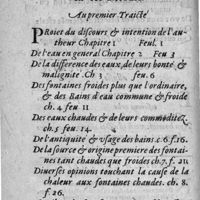 Au premier Traicté
PRoiet du discours & intention de l'au-
theur Chapitre 1 Feul. 1
De l'eau en general Chapitre 2 Feu 3
De la difference des eaux, de leurs bonté &
malignité. Ch 3 feu. 6
Des fontaines froides plus que l'ordinaire,
& des Bains d'eau commune & froide
ch. 4 feu 11
Des eaux chaudes & de leurs commoditez
ch. 5 feu. 14.
De l'antiquité & vsage des bains c. 6 f. 16.
De la source & origine premiere des fontai-
nes tant chaudes que froides ch. 7. f. 21
Diuerses opinions touchant la cause de la
chaleur aux fontaines chaudes. ch. 8.
f. 26.